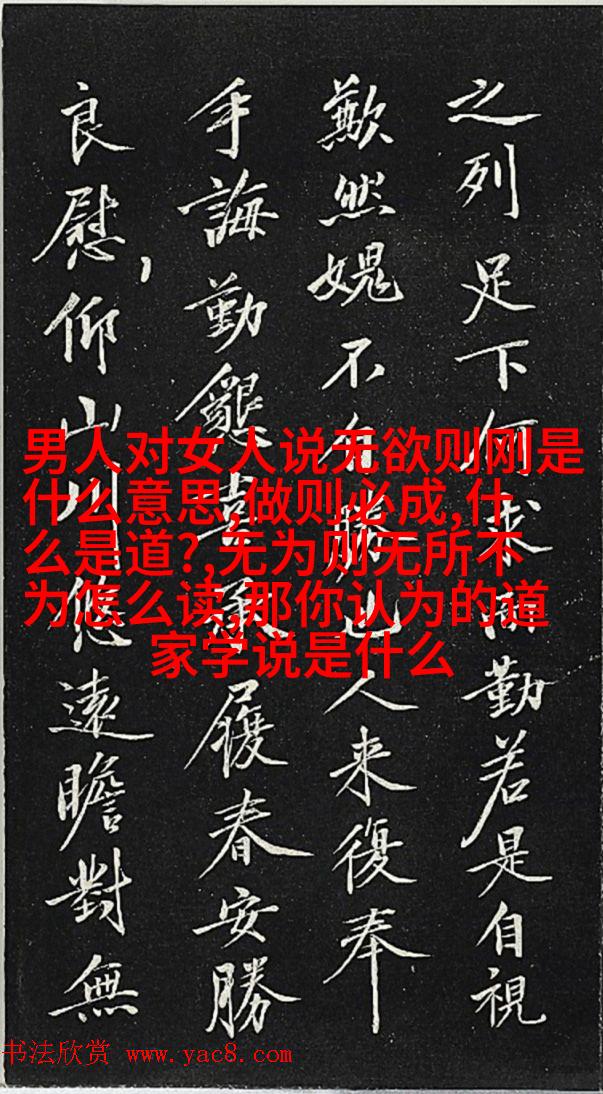 之列足下何求而勤若是自視
歉然媿不自勝也人来復奉
手誨勤懇喜承履春安勝
良慰,仰山川悠遠瞻對無
男人对女人说无欲则刚是
什么意思,做则必成,什
么是道?,无为则无所不
为怎么读,那你认为的道
家学说是什么
书法欣赏 www.yac8.com